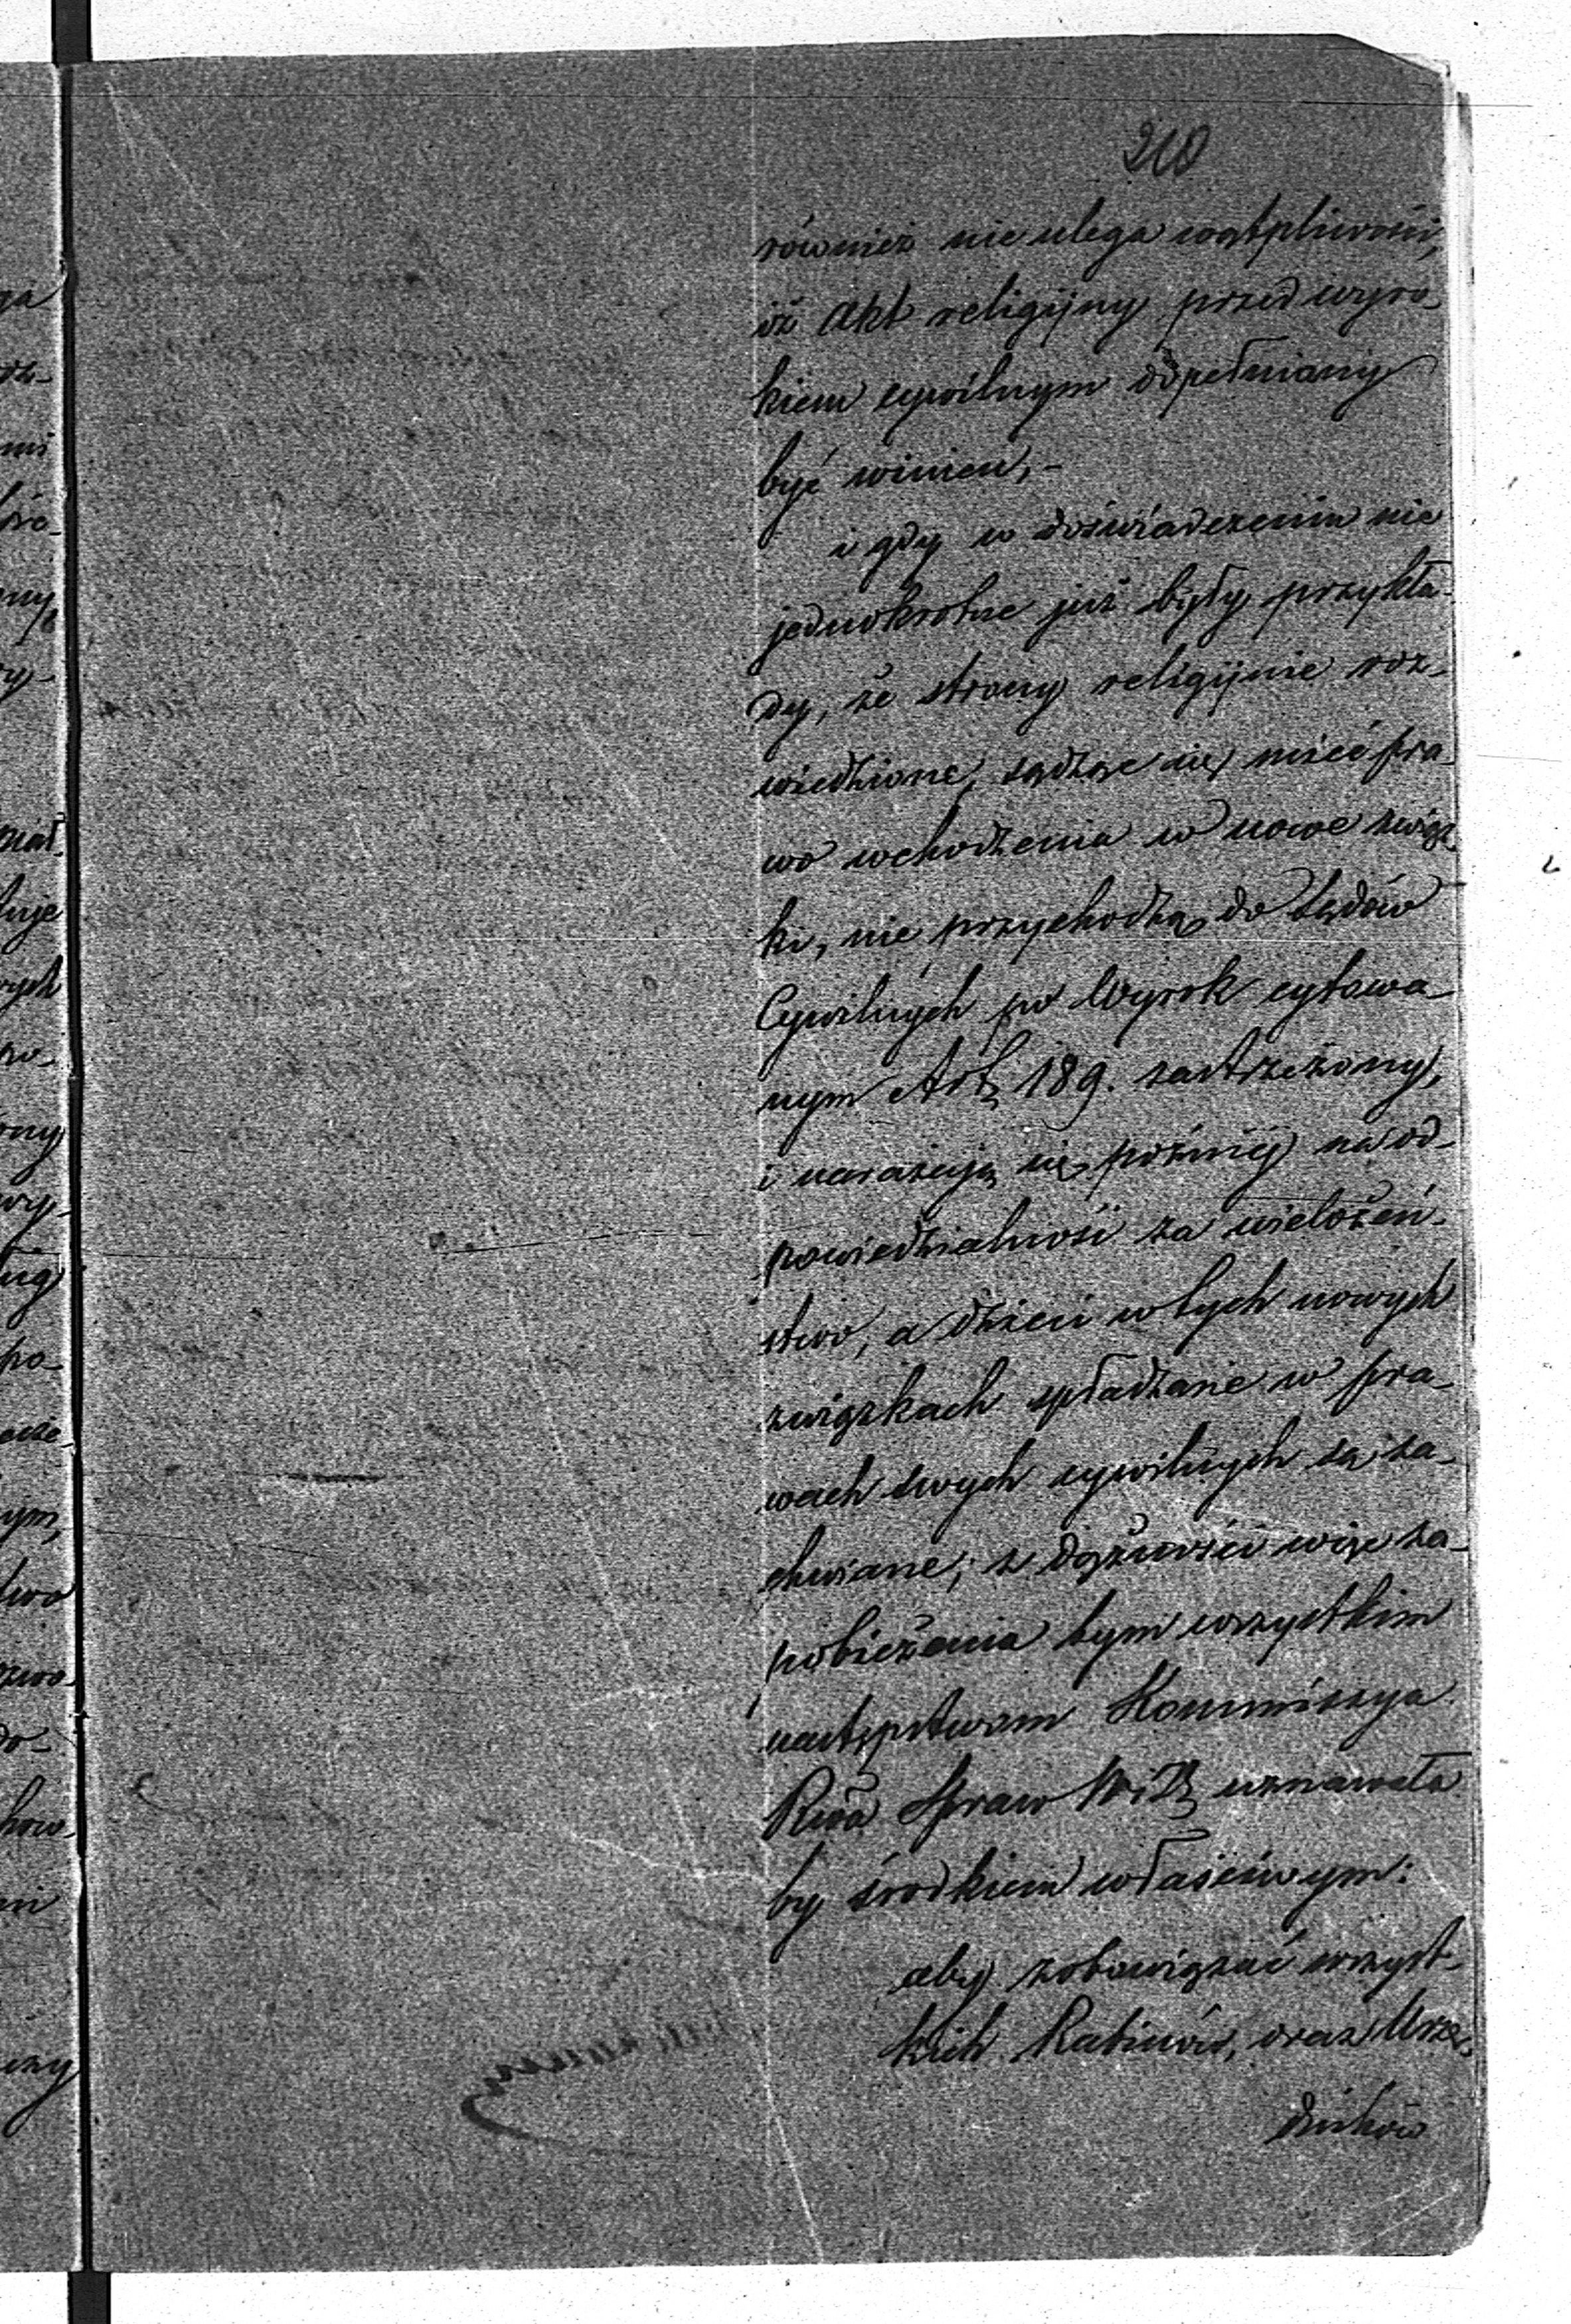 210
również nie ulega wątpliwości,
iż Akt religijny przed wyro-
kiem cywilnym dopełniany
być winien, -
i gdy w doświadczeniu nie
jednokrotne już były przykła-
dy, że strony religijnie roz-
wiedzione, sądząc się mieć pra-
wo wchodzenia w nowe związ-
ki, nie przychodzą do Sądów
Cywilnych po Wyrok cytowa-
nym Art. 189. zastrzeżony,
i narażają się później na od-
powiedzialność za wielożeń-
stwo, a dzieci w tych nowych
związkach spładzane w pra-
wach swych cywilnych są za-
chwiane; z dążności więc za-
pobieżenia tym wszystkim
następstwom Kommissya
Rwa Spraw W i D uznawała
by środkiem właściwym:
aby zobowiązać wszyst-
kich Rabinów, oraz Urzę-
dników